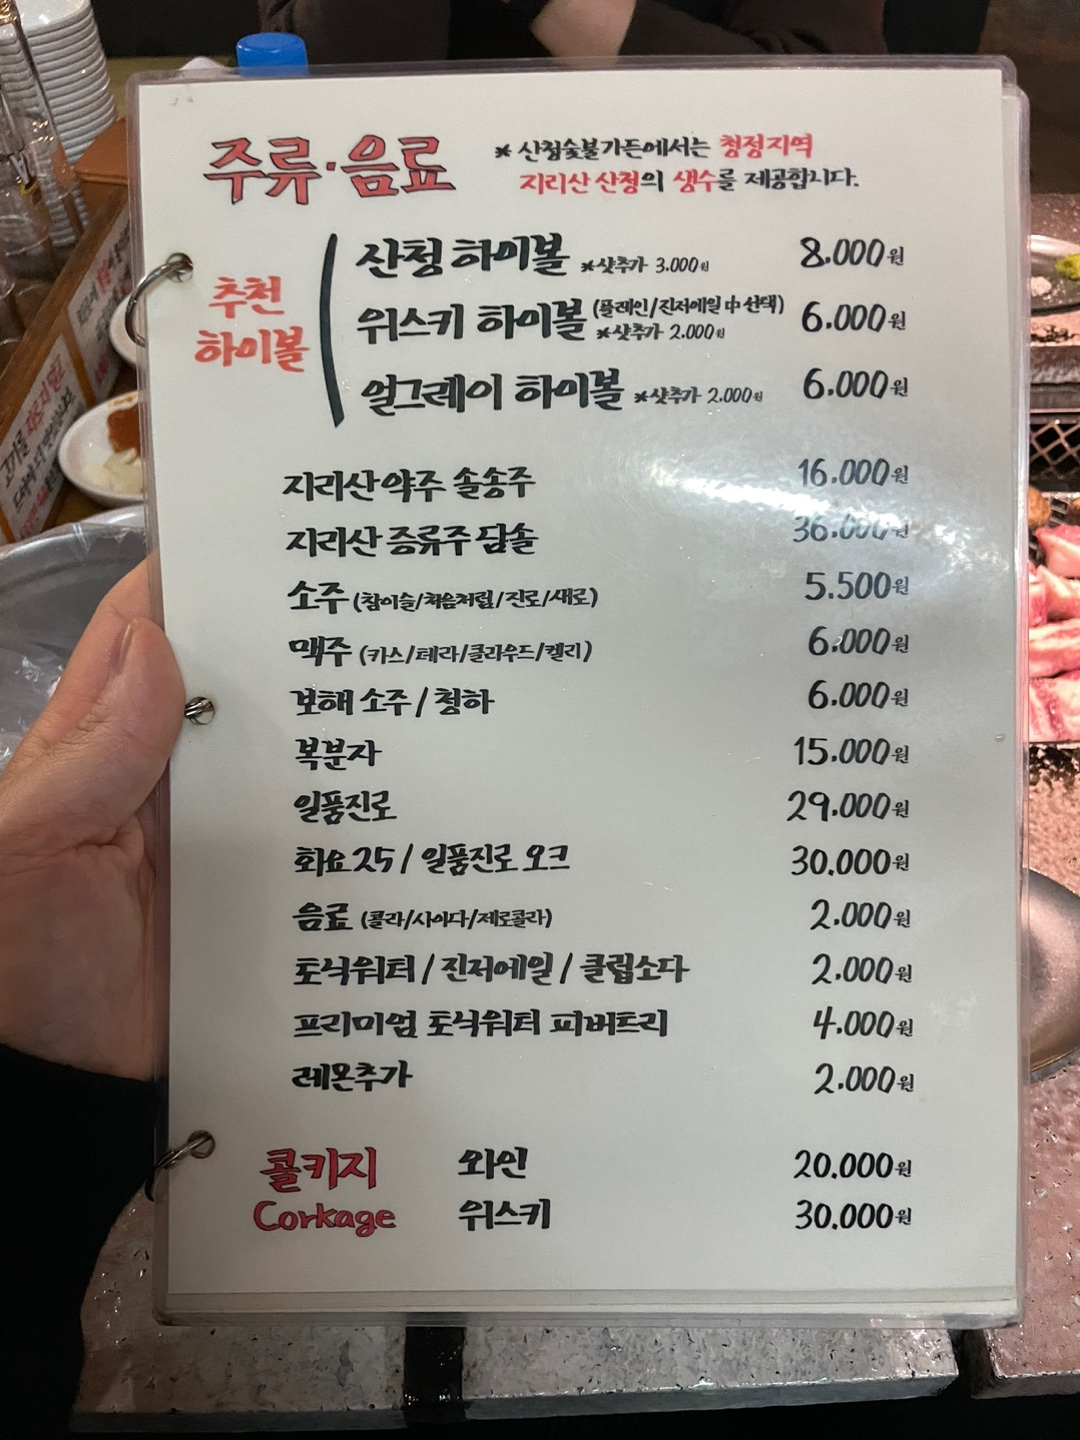 주류·음료
* 산청숯불가든에서는 청정지역
지리산 산청의 생수를 제공합니다.
추천
하이볼
산청 하이볼 *샷추가 3.000원 8.000원
위스키 하이볼 (플레인/진저에일 中 선택) *샷추가 2.000원 6.000원
얼그레이 하이볼 *샷추가 2.000원 6.000원
지리산 약주 솔송주 16.000원
지리산 증류주 담솔 36.000원
소주 (참이슬/처음처럼/진로/새로) 5.500원
맥주 (카스/테라/클라우드/켈리) 6.000원
보해 소주 / 청하 6.000원
복분자 15.000원
일품진로 29.000원
화요25 / 일품진로 오크 30.000원
음료 (콜라/사이다/제로콜라) 2.000원
토닉워터 / 진저에일 / 클럽소다 2.000원
프리미엄 토닉워터 피버트리 4.000원
레몬추가 2.000원
콜키지 와인 20.000원
Corkage 위스키 30.000원